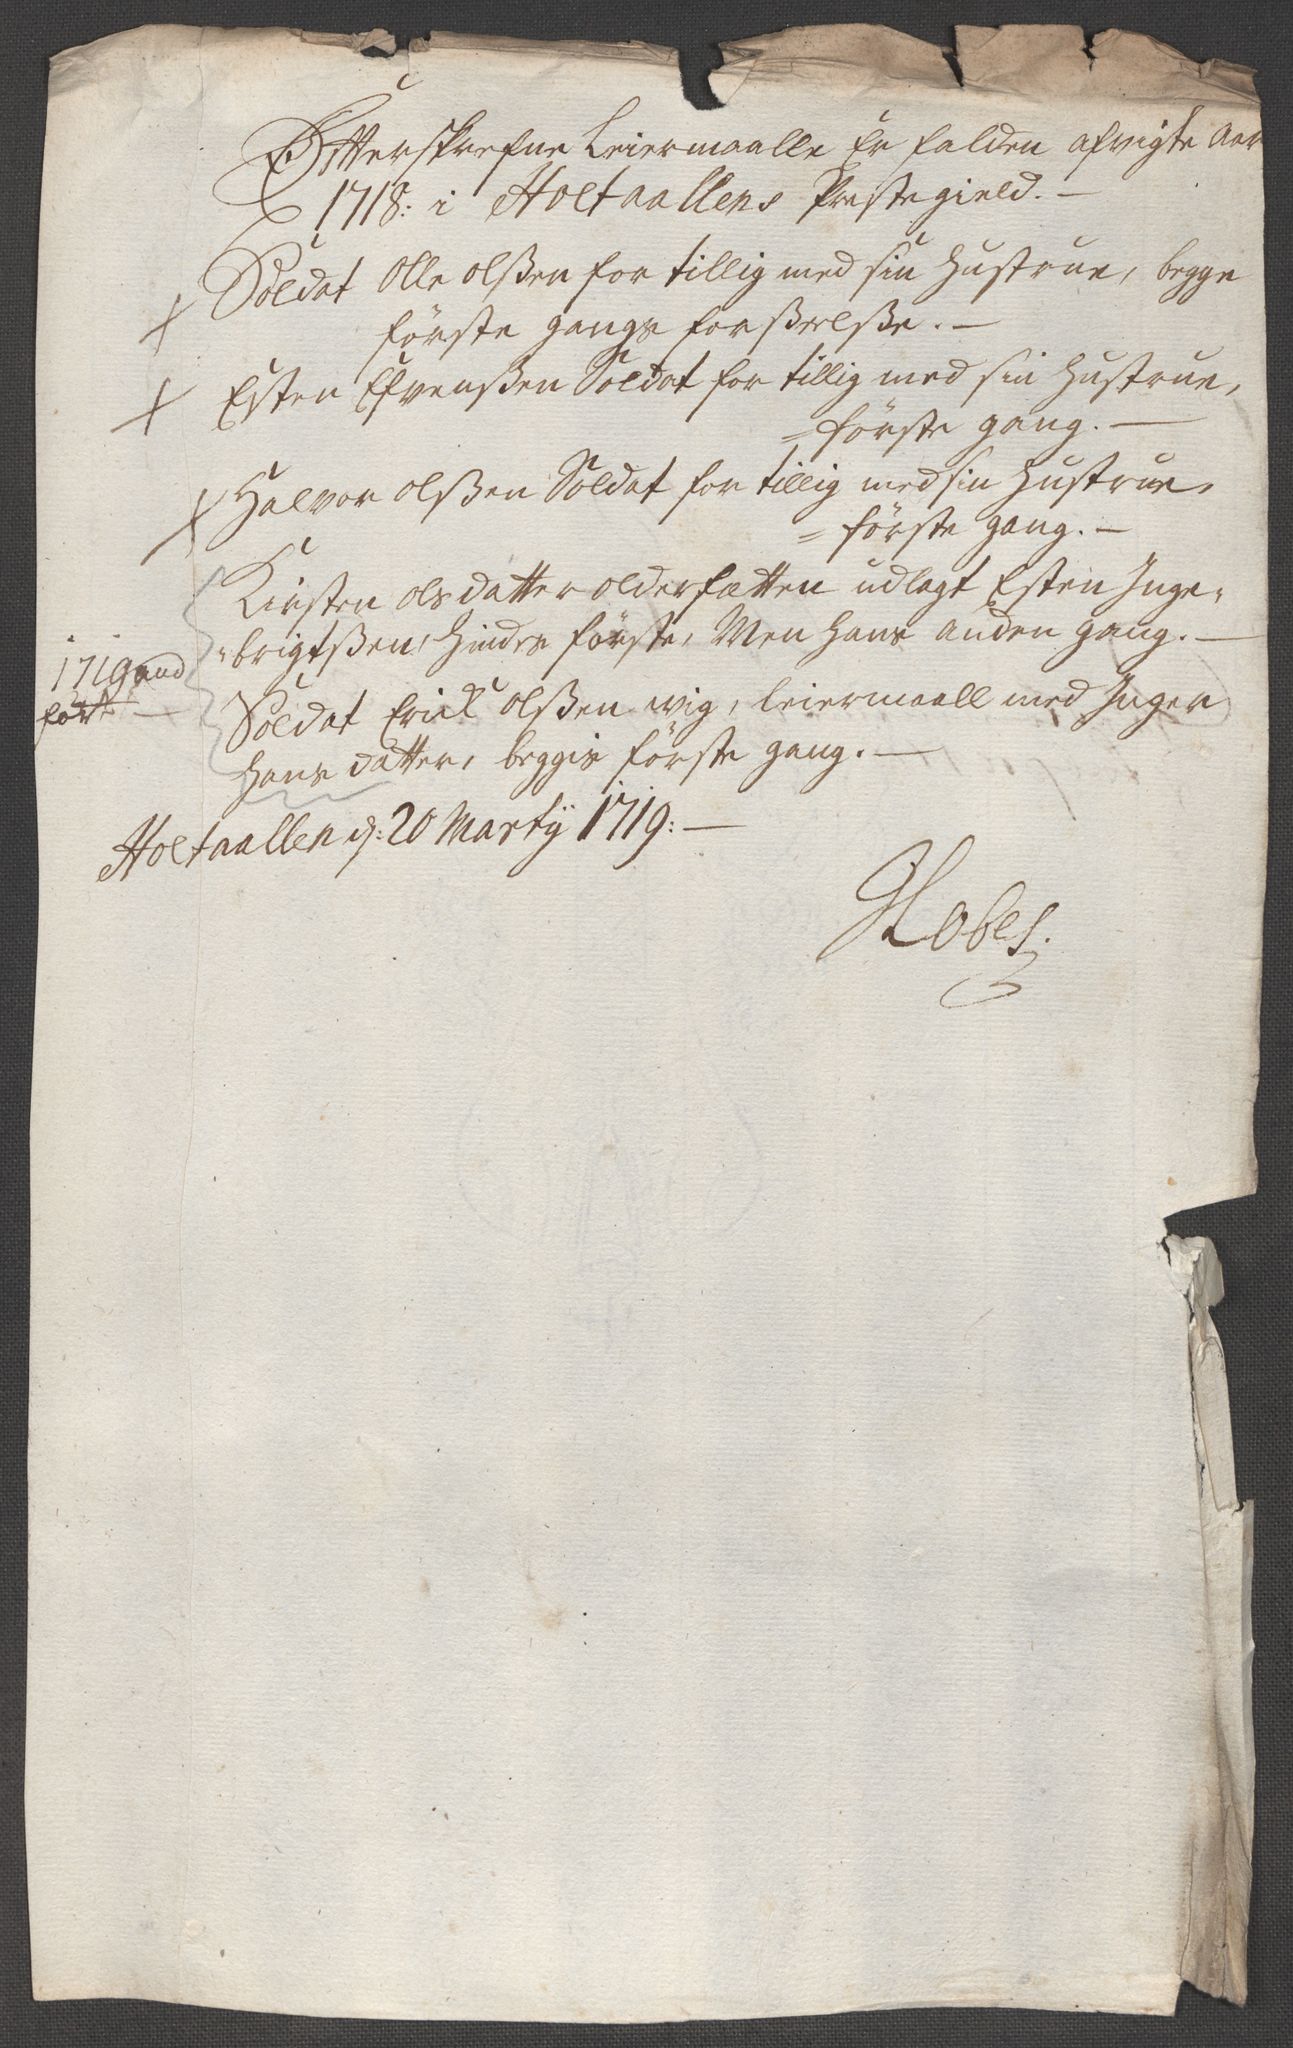 Effterskrefne Leiermaalle Er falden afvigte Aar
1718: i Holtaallens Prestegield. —
Soldat Olle Olßen for tillig med sin Hustrue, begge
förste gangs forßeelße. —
Esten Efvenßen Soldat for tillig med sin Hustrue,
= förste gang. —
Halvor Olßen Soldat for tillig med sin Hustrue,
= förste gang. —
Kirsten Olsdatter udlagt Esten Inge=
=brigtßen, hindes förste, Men hans anden gang. —
1719
fört —
Soldat Erick Olßen wig, leiermaall med Inger
Hans datter, beggis förste gang. —
Holtaallen d: 20 Marty 1719: —